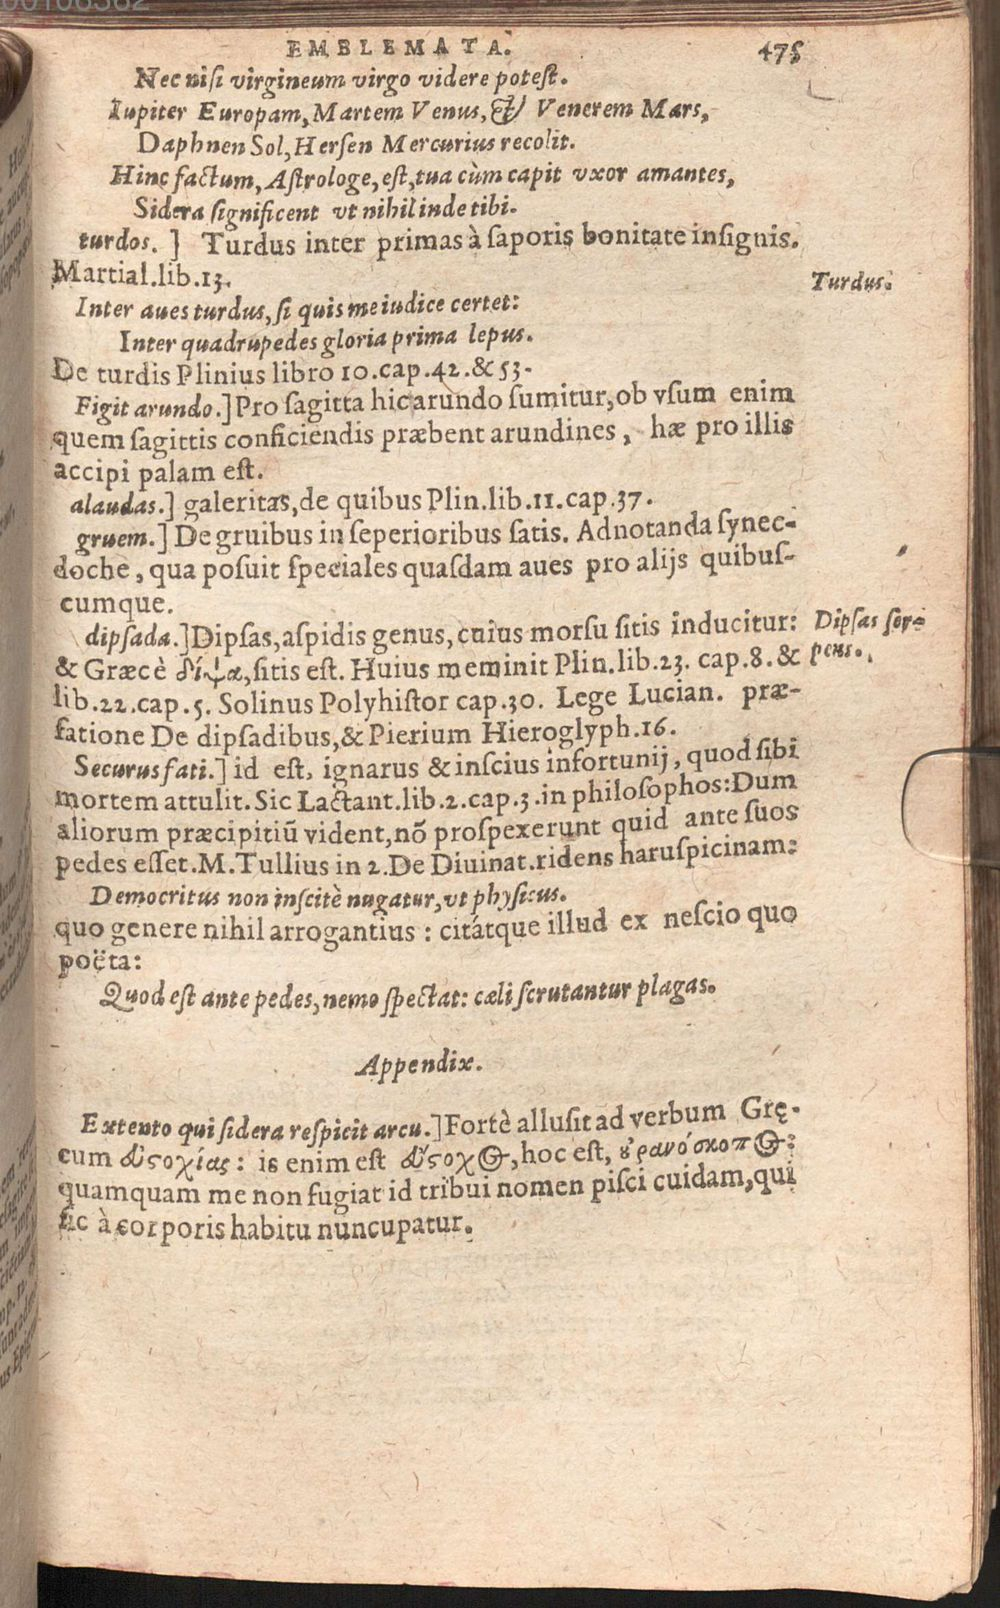 EMBLEMATA. 475
Nec niſi virgineum virgo videre poteſt.
Iupiter Europam, Martem Venus, & Venerem Mars,
Daphnen Sol, Herſen Mercurius recolit.
Hinc factum, Aſtrologe, eſt, tua cùm capit vxor amantes,
Sidera ſignificent vt nihil inde tibi.
turdos. ] Turdus inter primas à ſaporis bonitate inſignis.
Martial.lib.13.
Turdus.
Inter aues turdus, ſi quis me iudice certet:
Inter quadrupedes gloria prima lepus.
De turdis Plinius libro 10.cap.42.& 53.
Figit arundo.] Pro ſagitta hic arundo ſumitur, ob vſum enim
quem ſagittis conficiendis præbent arundines, hæ pro illis
accipi palam eſt.
alaudas.] galeritas, de quibus Plin.lib.11.cap.37.
gruem.] De gruibus in ſeperioribus ſatis. Adnotanda ſynec-
doche, qua poſuit ſpeciales quaſdam aues pro alijs quibuſ-
cumque.
dipſada.] Dipſas, aſpidis genus, cuius morſu ſitis inducitur:
Dipſas ſer-
pens.
& Græcè δίψα, ſitis eſt. Huius meminit Plin.lib.23. cap.8. &
lib.22.cap.5. Solinus Polyhiſtor cap.30. Lege Lucian. præ-
fatione De dipſadibus, & Pierium Hieroglyph.16.
Securus fati.] id eſt, ignarus & inſcius infortunij, quod ſibi
mortem attulit. Sic Lactant.lib.2.cap.3.in philoſophos: Dum
aliorum præcipitiũ vident, nõ proſpexerunt quid ante ſuos
pedes eſſet. M. Tullius in 2. De Diuinat. ridens haruſpicinam:
Democritus non inſcitè nugatur, vt phyſicus.
quo genere nihil arrogantius : citátque illud ex neſcio quo
poëta:
Quod eſt ante pedes, nemo ſpectat: cæli ſcrutantur plagas.
Appendix.
Extento qui ſidera reſpicit arcu.] Fortè alluſit ad verbum Grę-
cum εὐστοχίας: is enim eſt εὔστοχος, hoc eſt, οὐρανόσκοπος:
quamquam me non fugiat id tribui nomen piſci cuidam, qui
ſic à corporis habitu nuncupatur.